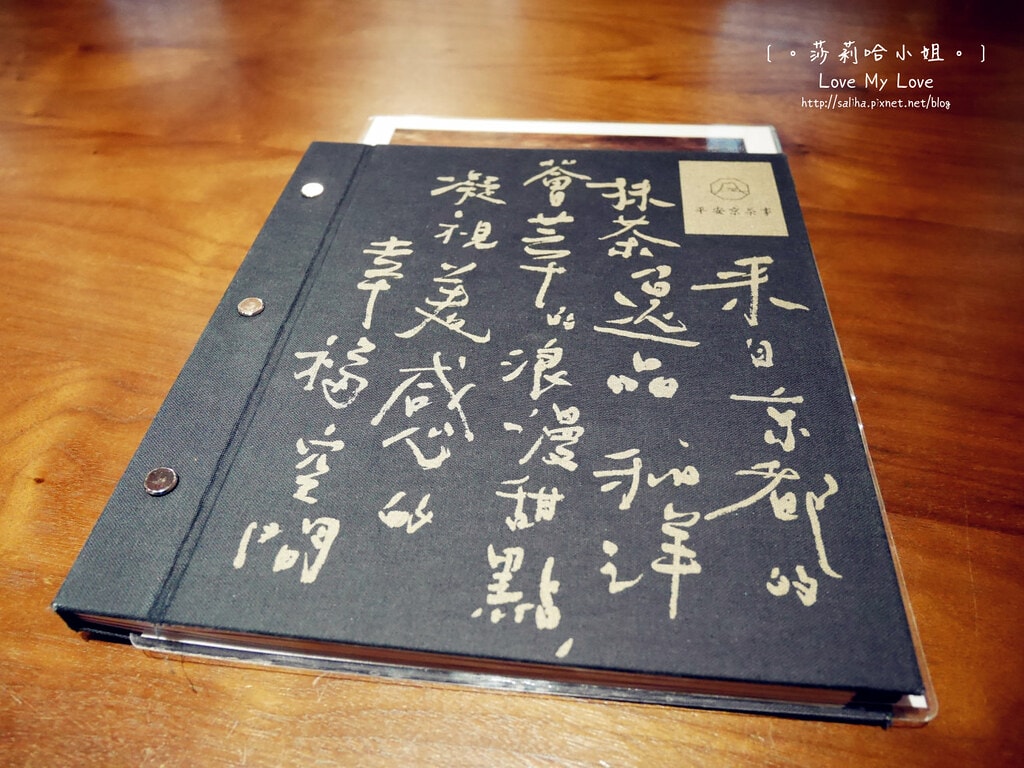 [。莎莉哈小姐。]
Love My Love
http://saliha.pixnet.net/blog
平安京茶事
来自京都的
抹茶逸品 和洋之
薈萃的浪漫甜點,
凝視美感的
幸福空間